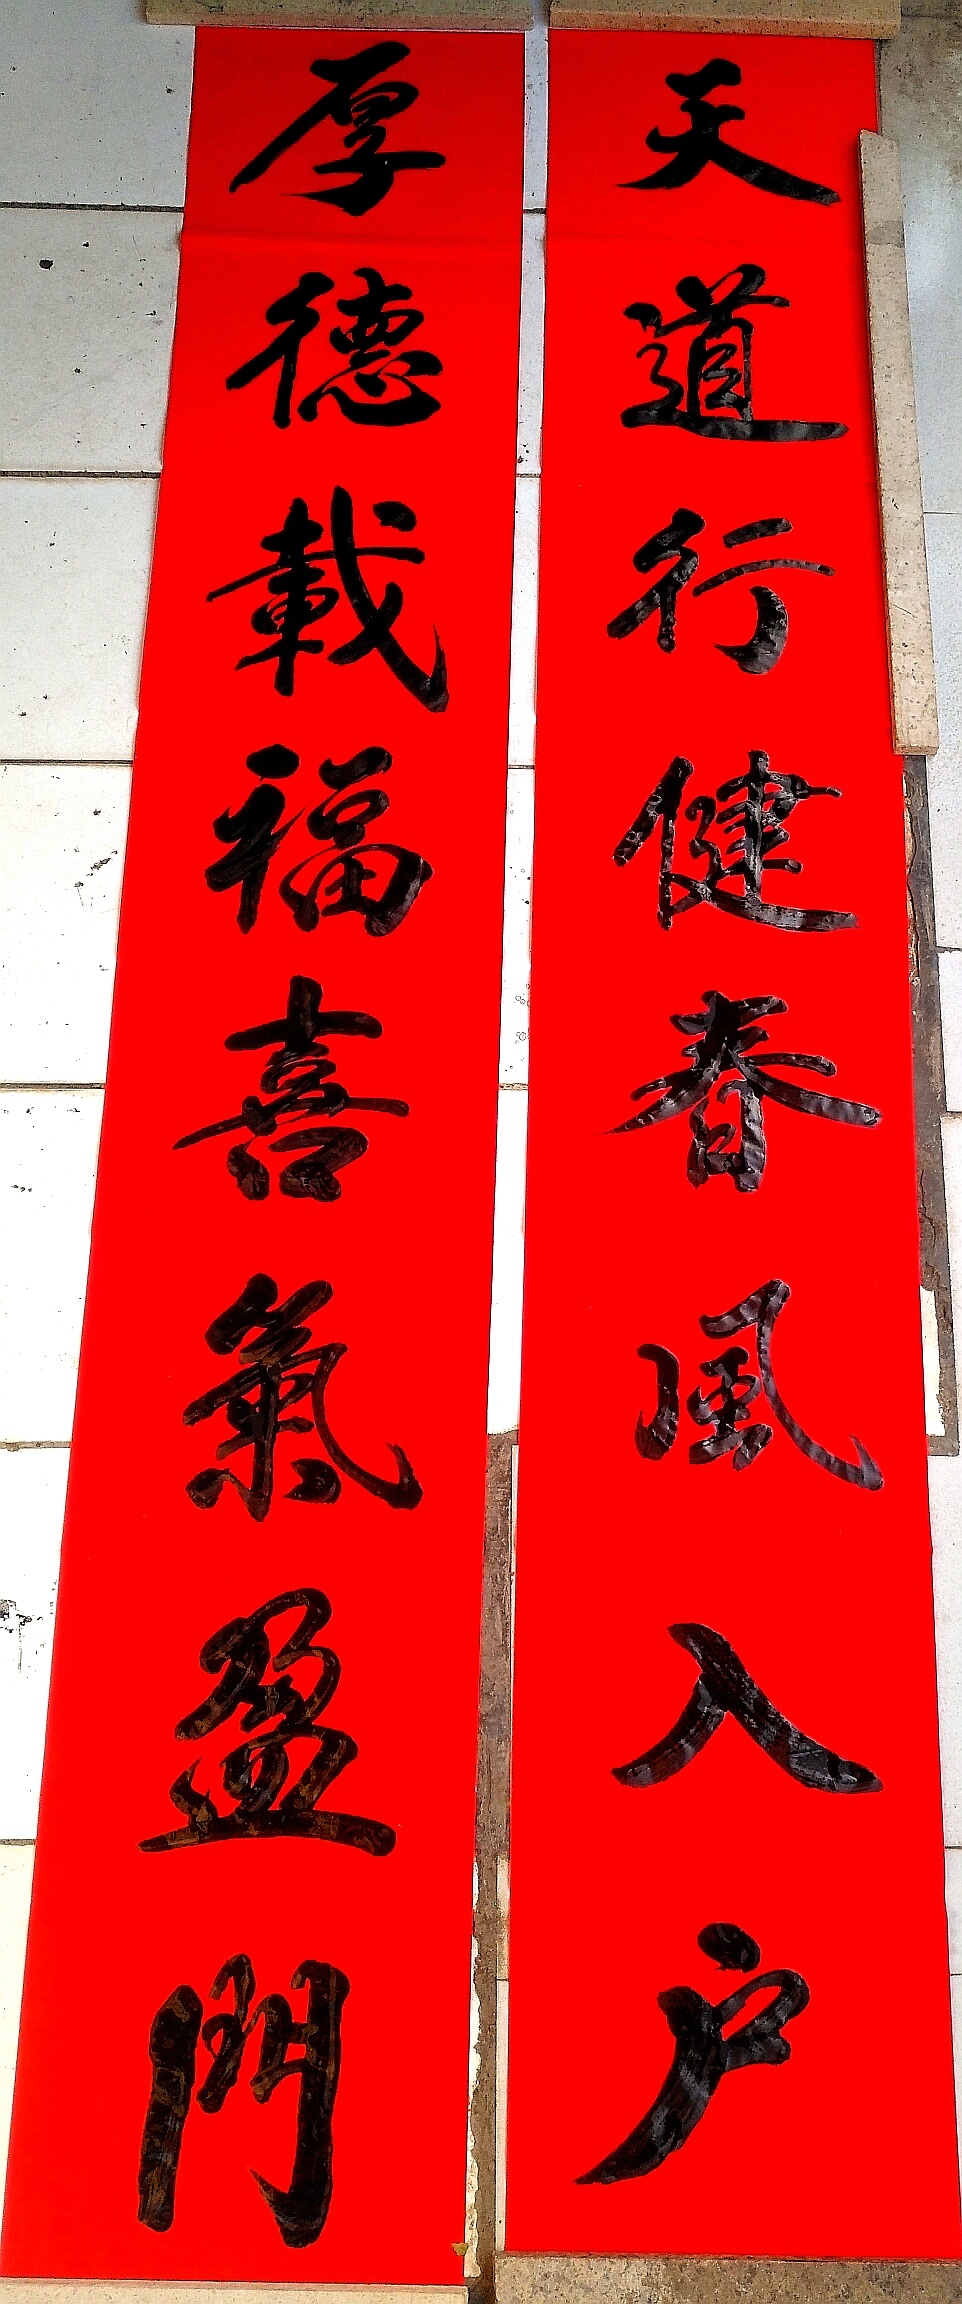 天道行健春風入户
厚德載福喜氣盈門